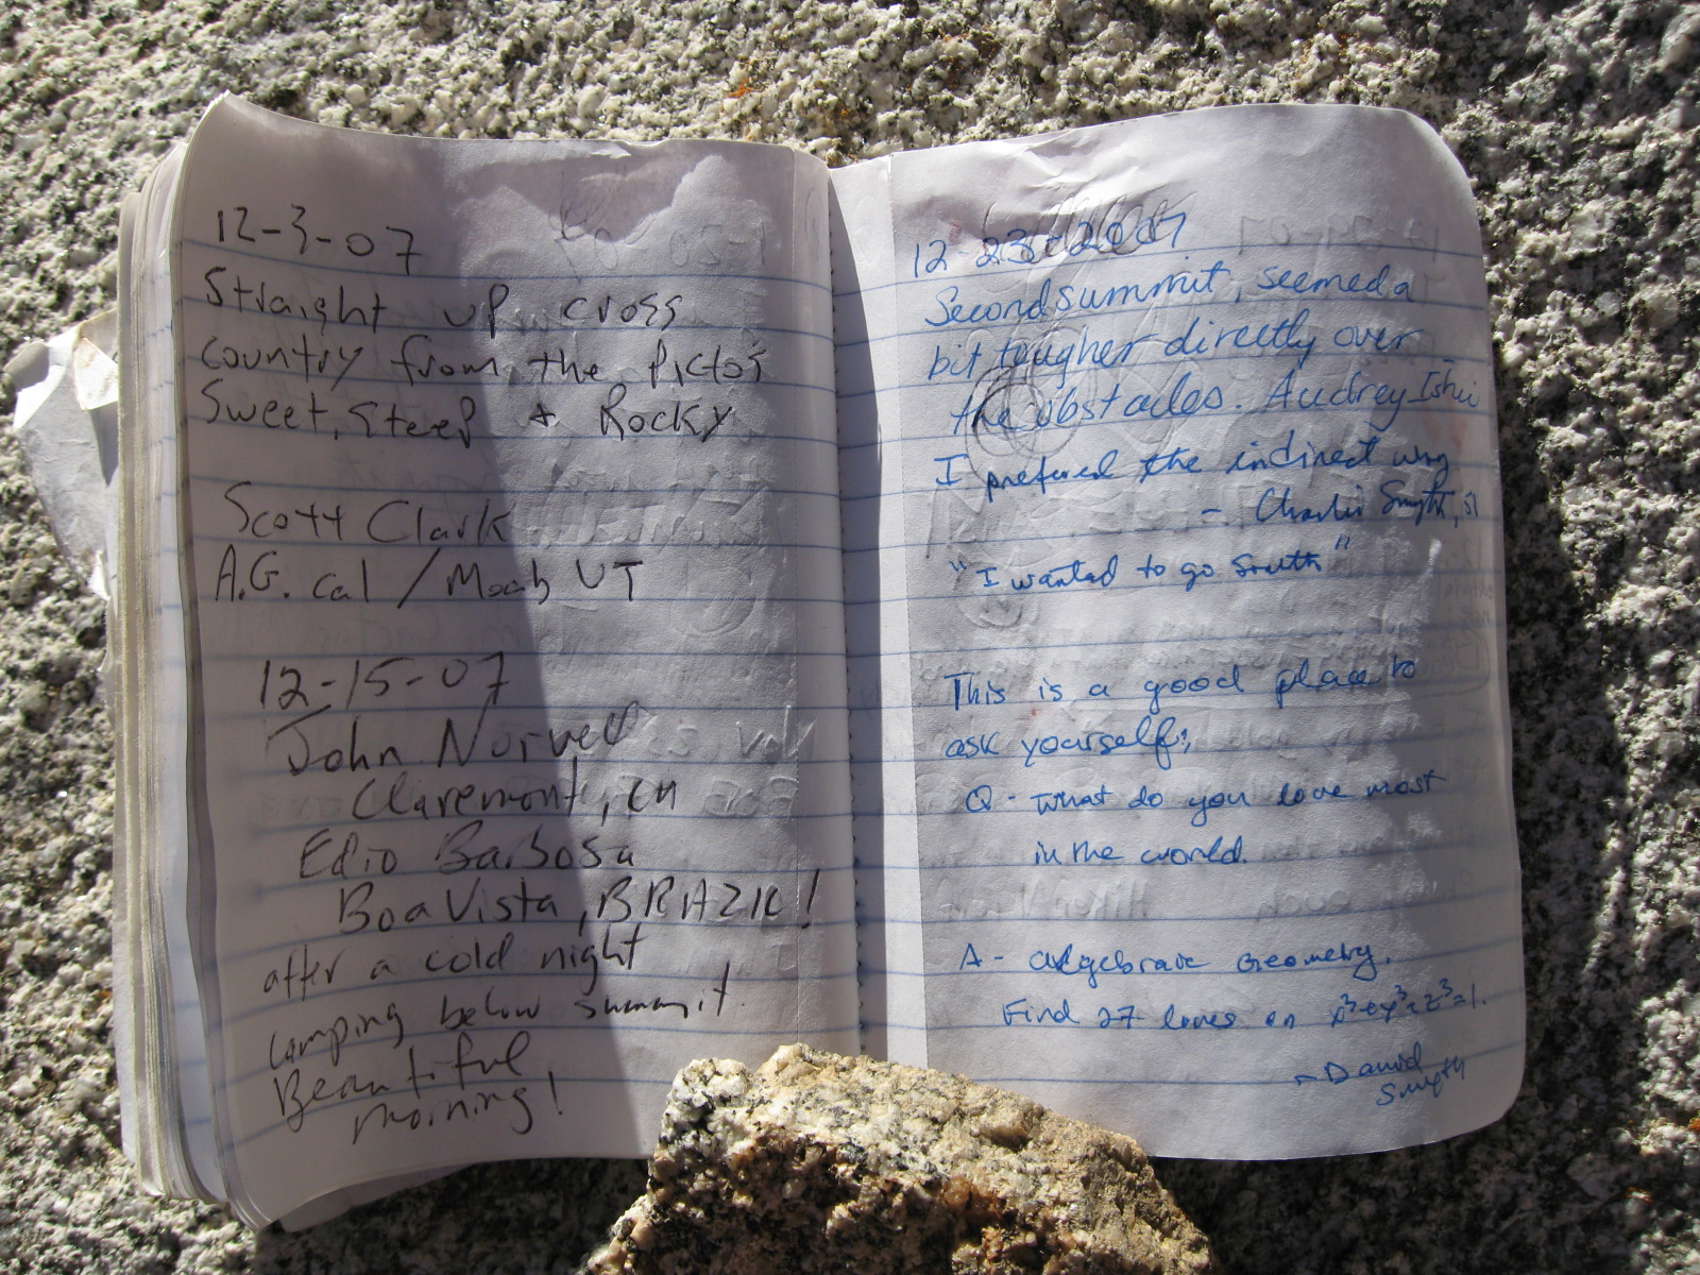 12-3-07
Straight up cross
country from the Pictos
Sweet, Steep + Rocky
Scott Clark
A.G. Cal / Moab UT
12-15-07
John Norvell
Claremont, CA
Edio Barbosa
Boa Vista, BRAZIL!
after a cold night
camping below summit.
Beautiful
morning!
12-23-2007
Second summit, seemed a
bit tougher directly over
the obstacles. Audrey Ishii
I preferred the indirect way
- Charlie Smyth,
"I wanted to go south"
This is a good place to
ask yourself;
Q - What do you love most
in the world.
A - algebraic Geometry.
Find 27 lines on x³+y³+z³=1.
- David
Smyth